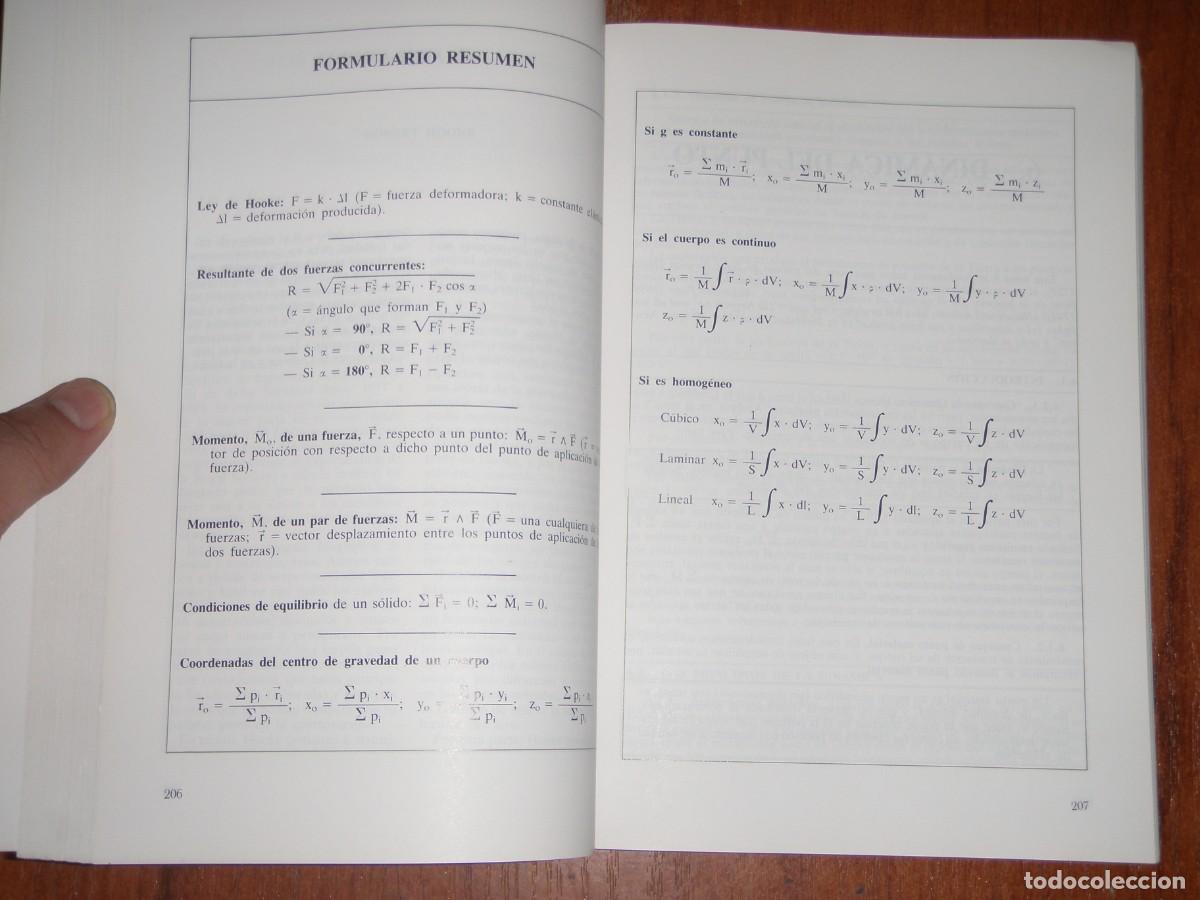 FORMULARIO RESUMEN
Ley de Hooke: F = k · Δl (F = fuerza deformadora; k = constante
Δl = deformación producida).
Resultante de dos fuerzas concurrentes:
R = √(F₁² + F₂² + 2F₁ · F₂ cos α)
(α = ángulo que forman F₁ y F₂)
— Si α = 90°, R = √(F₁² + F₂²)
— Si α = 0°, R = F₁ + F₂
— Si α = 180°, R = F₁ − F₂
Momento, M⃗ₒ, de una fuerza, F⃗, respecto a un punto: M⃗ₒ = r⃗ ∧ F⃗ (r⃗ =
tor de posición con respecto a dicho punto del punto de aplicación
fuerza).
Momento, M⃗, de un par de fuerzas: M⃗ = r⃗ ∧ F⃗ (F⃗ = una cualquiera
fuerzas; r⃗ = vector desplazamiento entre los puntos de aplicación
dos fuerzas).
Condiciones de equilibrio de un sólido: Σ F⃗ᵢ = 0; Σ M⃗ᵢ = 0.
Coordenadas del centro de gravedad de un cuerpo
r⃗ₒ = Σ pᵢ · r⃗ᵢ / Σ pᵢ; xₒ = Σ pᵢ · xᵢ / Σ pᵢ; yₒ = Σ pᵢ · yᵢ / Σ pᵢ; zₒ = Σ pᵢ · / Σ pᵢ
206
Si g es constante
r⃗ₒ = Σ mᵢ · r⃗ᵢ / M; xₒ = Σ mᵢ · xᵢ / M; yₒ = Σ mᵢ · xᵢ / M; zₒ = Σ mᵢ · zᵢ / M
Si el cuerpo es continuo
r⃗ₒ = 1/M ∫ r⃗ · ρ · dV; xₒ = 1/M ∫ x · ρ · dV; yₒ = 1/M ∫ y · ρ · dV
zₒ = 1/M ∫ z · ρ · dV
Si es homogéneo
Cúbico xₒ = 1/V ∫ x · dV; yₒ = 1/V ∫ y · dV; zₒ = 1/V ∫ z · dV
Laminar xₒ = 1/S ∫ x · dV; yₒ = 1/S ∫ y · dV; zₒ = 1/S ∫ z · dV
Lineal xₒ = 1/L ∫ x · dl; yₒ = 1/L ∫ y · dl; zₒ = 1/L ∫ z · dV
207
todocoleccion